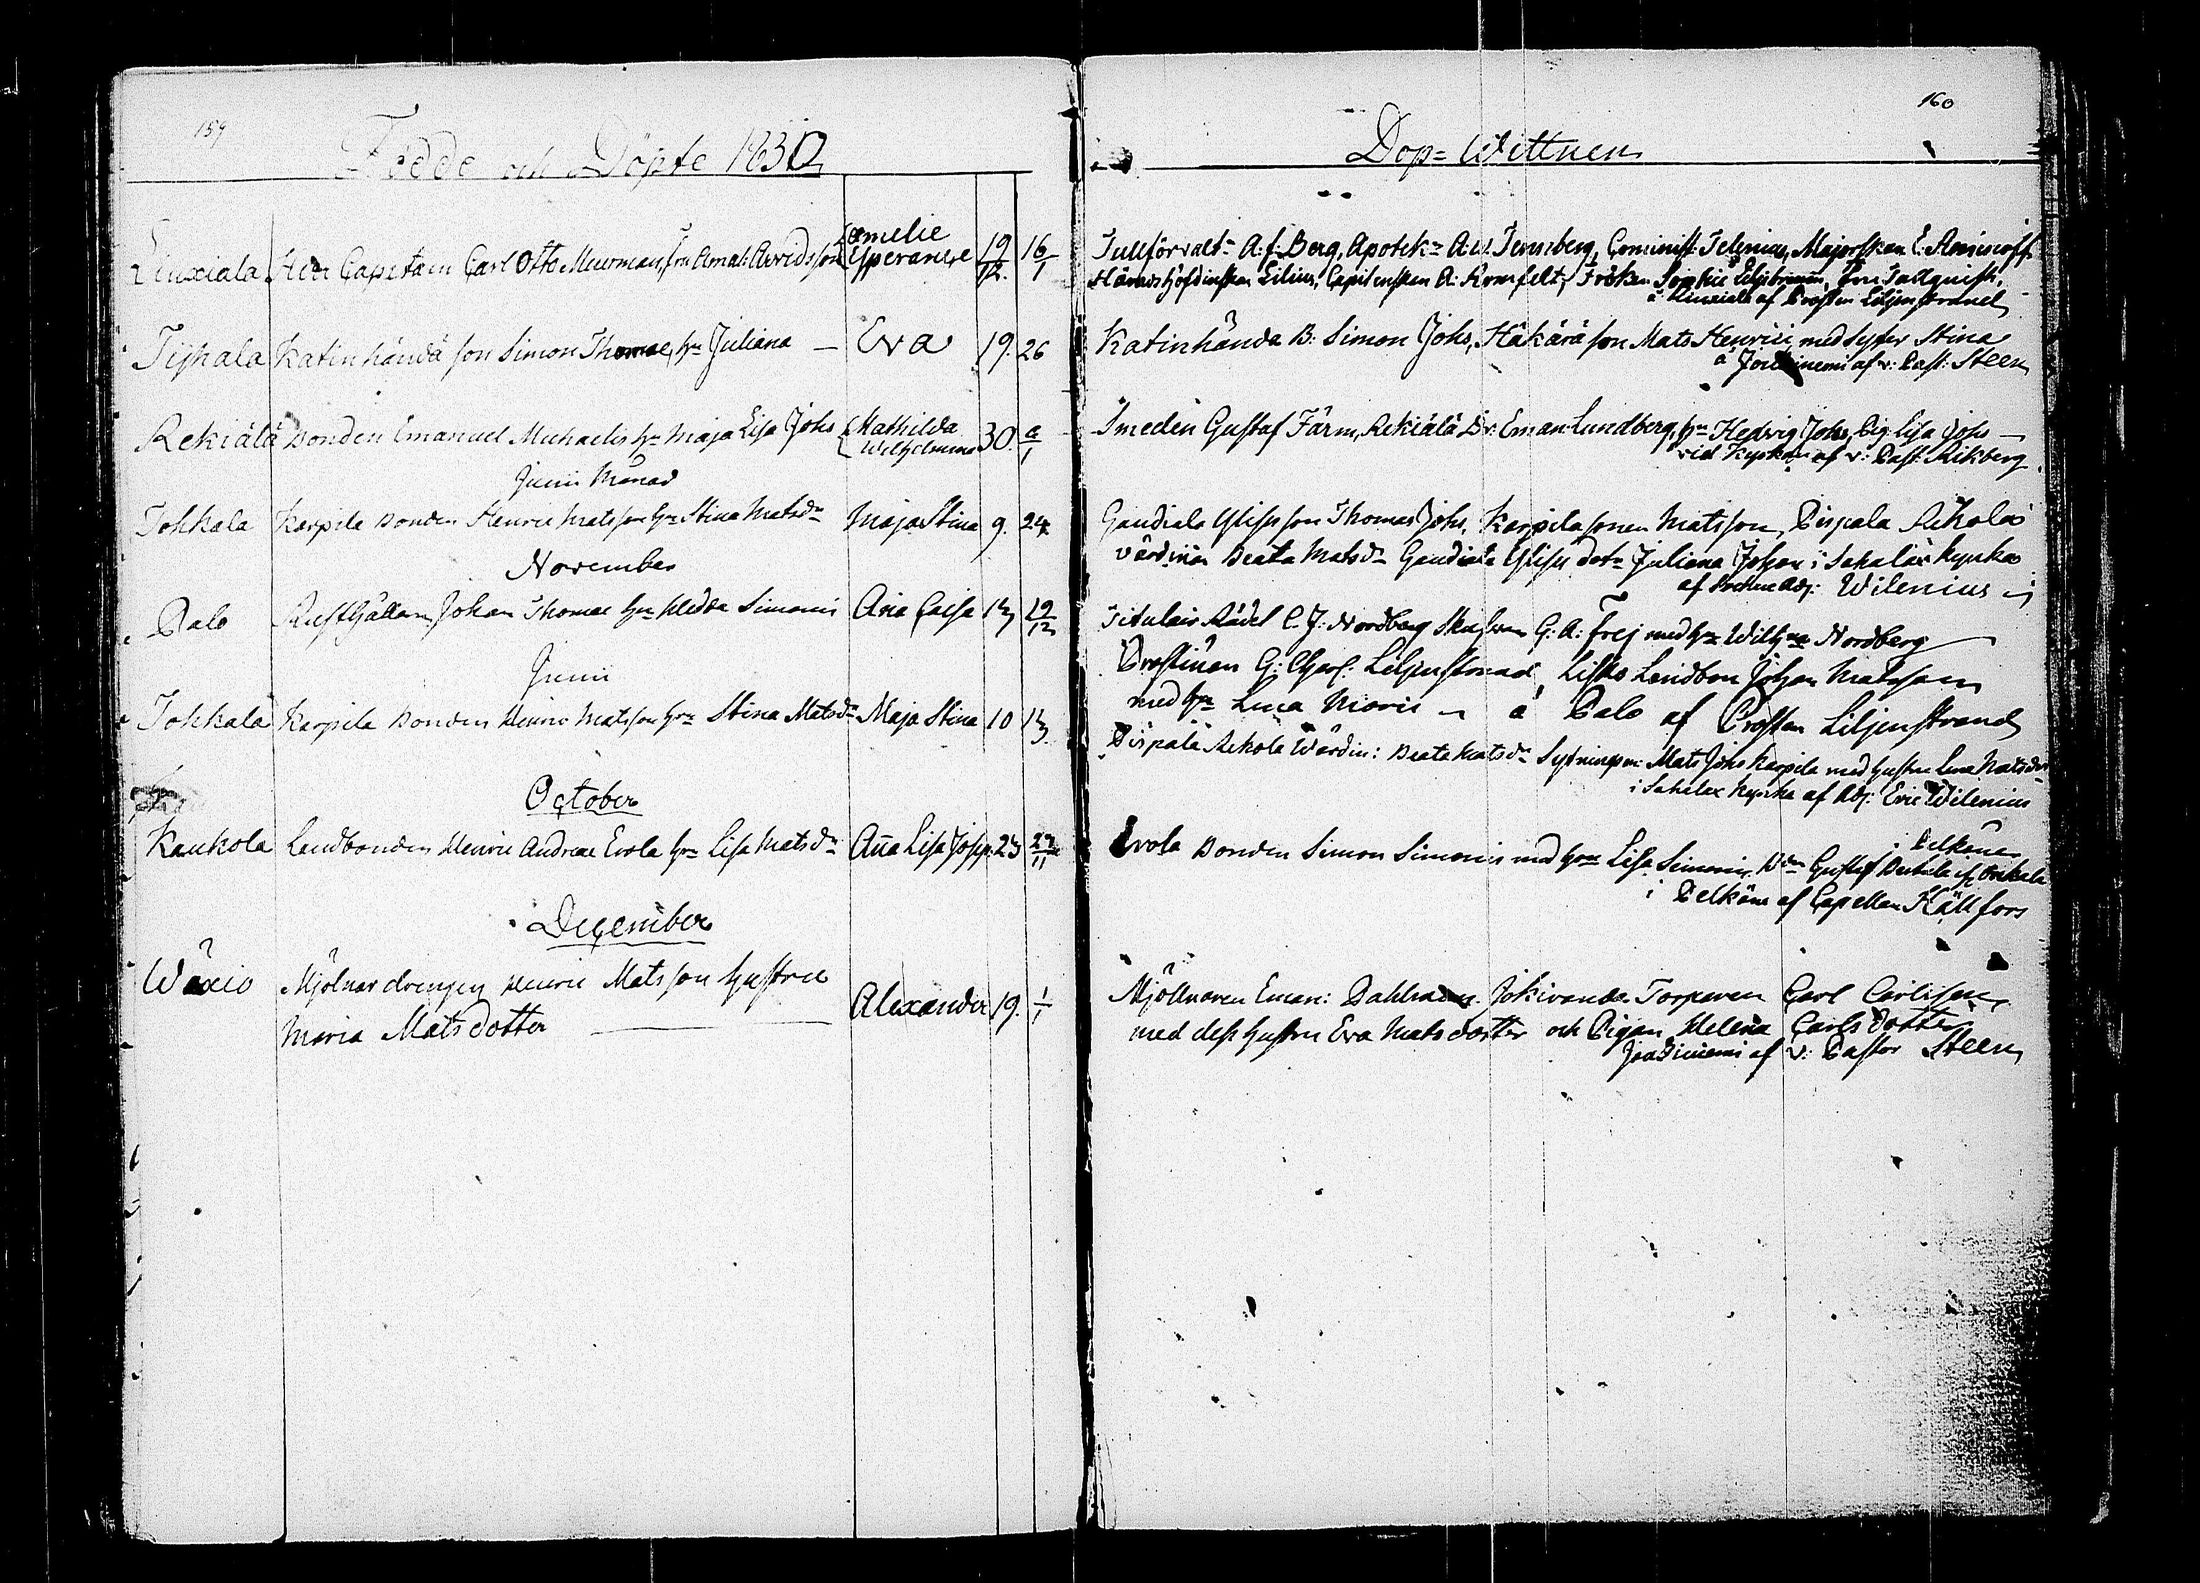 159
Födde och Döpte 1830
Liuxiala Herr Capitain Carl Otto Meurman, fru Amal: Arvidsson Emelie Esperance 19/12. 16/1
Tijhala Katinhändä son Simon Thomae, hu Juliana — Eva 19. 26
Rekiälä Bonden Emanuel Michaelis hu Maja Lisa Johs Mathilda Wilhelmina 30. 2/1
Junii Månad
Tohkala Karpila Bonden Henric Matsson hu Stina Matsdr Maja Stina 9. 24
November
Palo Rusthållaren Johan Thomae hu Hedda Simonis Ana Caisa 13 19/12
Junii
Tohkala Karpila Bonden Henric Matsson hru Stina Matsdr Maja Stina 10 13.
October
Kaukola Landbonden Henric Andreae Evola hru Lisa Matsdr Aña Lisa Josep: 23 27/11
December
Wäxiö Mjölnar drengen Henric Matsson hustru
Maria Matsdotter — Alexander 19. 1/1
160
Dop=Wittnen
Tullförvalt: A: f: Berg, Apotek: A: W: Ternsberg, Cominist: Telenius, Majorskan E. Aminoff
Häradshöfdinskan Lilius, Capitenskan A: Armfelt, Fröken Sophie Liljebrunn, fru Tallquist,
å Liuxiala af Prosten Liljenstrand
Katinhända B: Simon Johs, Häkärä son Mats Henrici med syster Stina
å af v: Past: Steen
Smeden Gustaf Färm, Rekiälä Dr: Eman: Lundberg, hu Hedvig Johs, Pig: Lisa Johs —
vid Kyrkan af v: Past: Rikberg
Gaudiala Ylisis son Thomas Johs, Karpila sonen Matsson, Pispala Arkola
värdinan Beata Matsdr Gaudiala Ylisis dotr Juliana Johan i Sahalax kyrka
af Sockne Adj: Wilenius
Titulair Rådet C. J: Nordberg G: A: Frej med hru Wilhna Nordberg
Prostinan G: Charl: Liljenstrand, Landbon Johan Matsson
med hru Lena Moris — å Palo af Prosten Liljenstrand
Pispala Arkola Wärdin: Beata Matsdr Sytningsm: Mats Johs Karpila med hustru Lena Matsdr
i Sahalax kyrka af Adj: Eric Wilenius
Evola Bonden Simon Simonis med hru Lisa Simonis, Bden Gustaf af Onkkala
i Pelkäne
i Pelkäne af Capellan Källfors
Mjöllnaren Eman: Jokivanda Torparen Carl Carlsson
med dess hustru Eva Matsdotter och Pigan Helena Carlsdotter
af v: Pastor Steen